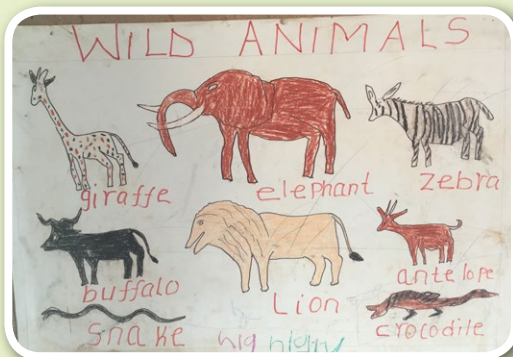 WILD ANIMALS
giraffe
elephant
zebra
buffalo
Lion
antelope
snake
crocodile